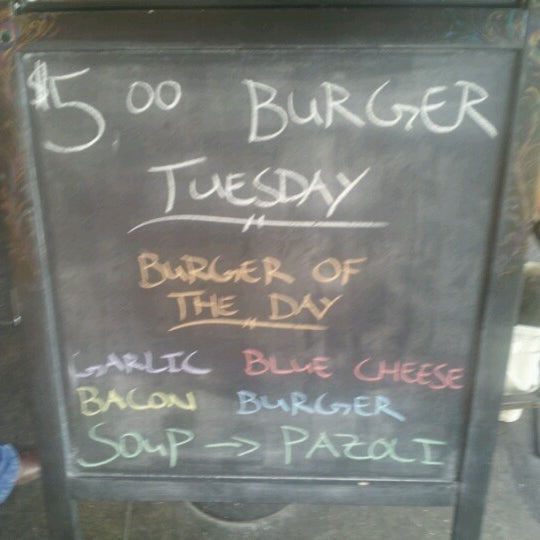 $5.00 BURGER
TUESDAY
BURGER OF
THE DAY
GARLIC BLUE CHEESE
BACON BURGER
SOUP → PAZOLI